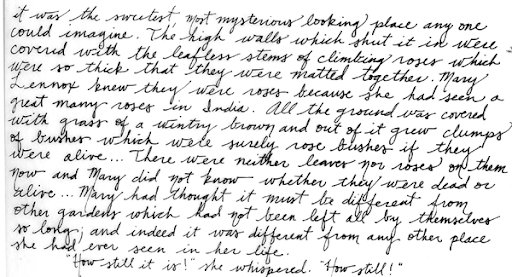 it was the sweetest most mysterious looking place any one
could imagine. The high walls which shut it in were
covered with the leafless stems of climbing roses which
were so thick that they were matted together. Mary
Lennox knew they were roses because she had seen a
great many roses in India. All the ground was covered
with grass of a wintry brown and out of it grew clumps
of bushes which were surely rose bushes if they
were alive... There were neither leaves nor roses on them
now and Mary did not know whether they were dead or
alive... Mary had thought it must be different from
other gardens which had not been left all by themselves
so long; and indeed it was different from any other place
she had ever seen in her life.
"How still it is!" she whispered. "How still!"